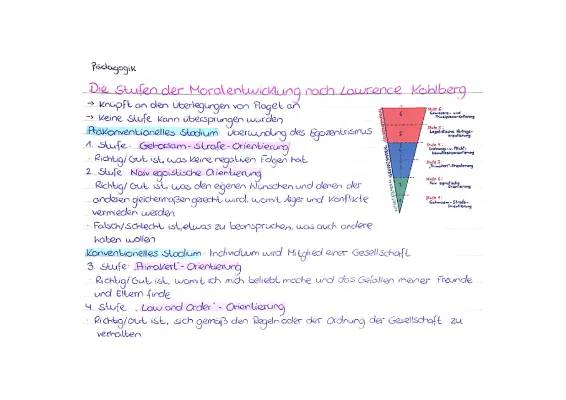 Pädagogik
Die Stufen der Moralentwicklung nach Lawrence Kohlberg
→ Knüpft an den Überlegungen von Piaget an
→ Keine Stufe kann übersprungen wurden
Präkonventionelles Stadium Überwindung des Egozentrismus
1. Stufe: Gehorsam-Strafe-Orientierung
· Richtig/Gut ist, was keine negativen Folgen hat
2. Stufe Naiv egoistische Orientierung
· Richtig/Gut ist was den eigenen Wünschen und denen der
anderen gleichermaßen gerecht wird. womit Ärger und Konflikte
vermieden werden
· Falsch/Schlecht ist, etwas zu beanspruchen, was auch andere
haben wollen
Konventionelles Stadium: Individuum wird Mitglied einer Gesellschaft
3. Stufe -Orientierung
Richtig/Gut ist, womit ich mich beliebt mache und das Gefallen meiner Freunde
und Eltern finde
4. Stufe „Law and Order"-Orientierung
· Richtig/Gut ist, sich gemäß den Regeln oder der Ordnung der Gesellschaft zu
verhalten
Stufe 6:
Stufe 5:
Stufe 4:
Stufe 3:
Orientierung
Naiv egoistische
Orientierung
Stufe 1:
Gehorsam-Strafe-
Orientierung